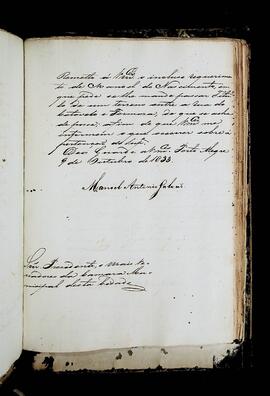 Remetto á Vmces o incluso requerimen
to de Manoel do Nascimento, em
que pede se lhe mande passar titu
lo de um terreno entre a rua do
e Formosa, de que se acha
de posse, afim de que Vmces me
informem o que occorrer sobre a
pertenção do Supe.
Deos Guarde a Vmces. Porto Alegre
9 de Outubro de 1833.
Manoel Antonio Galvão
Snr. Presidente, e mais Ve-
readores da Camara Mu-
nicipal desta Cidade